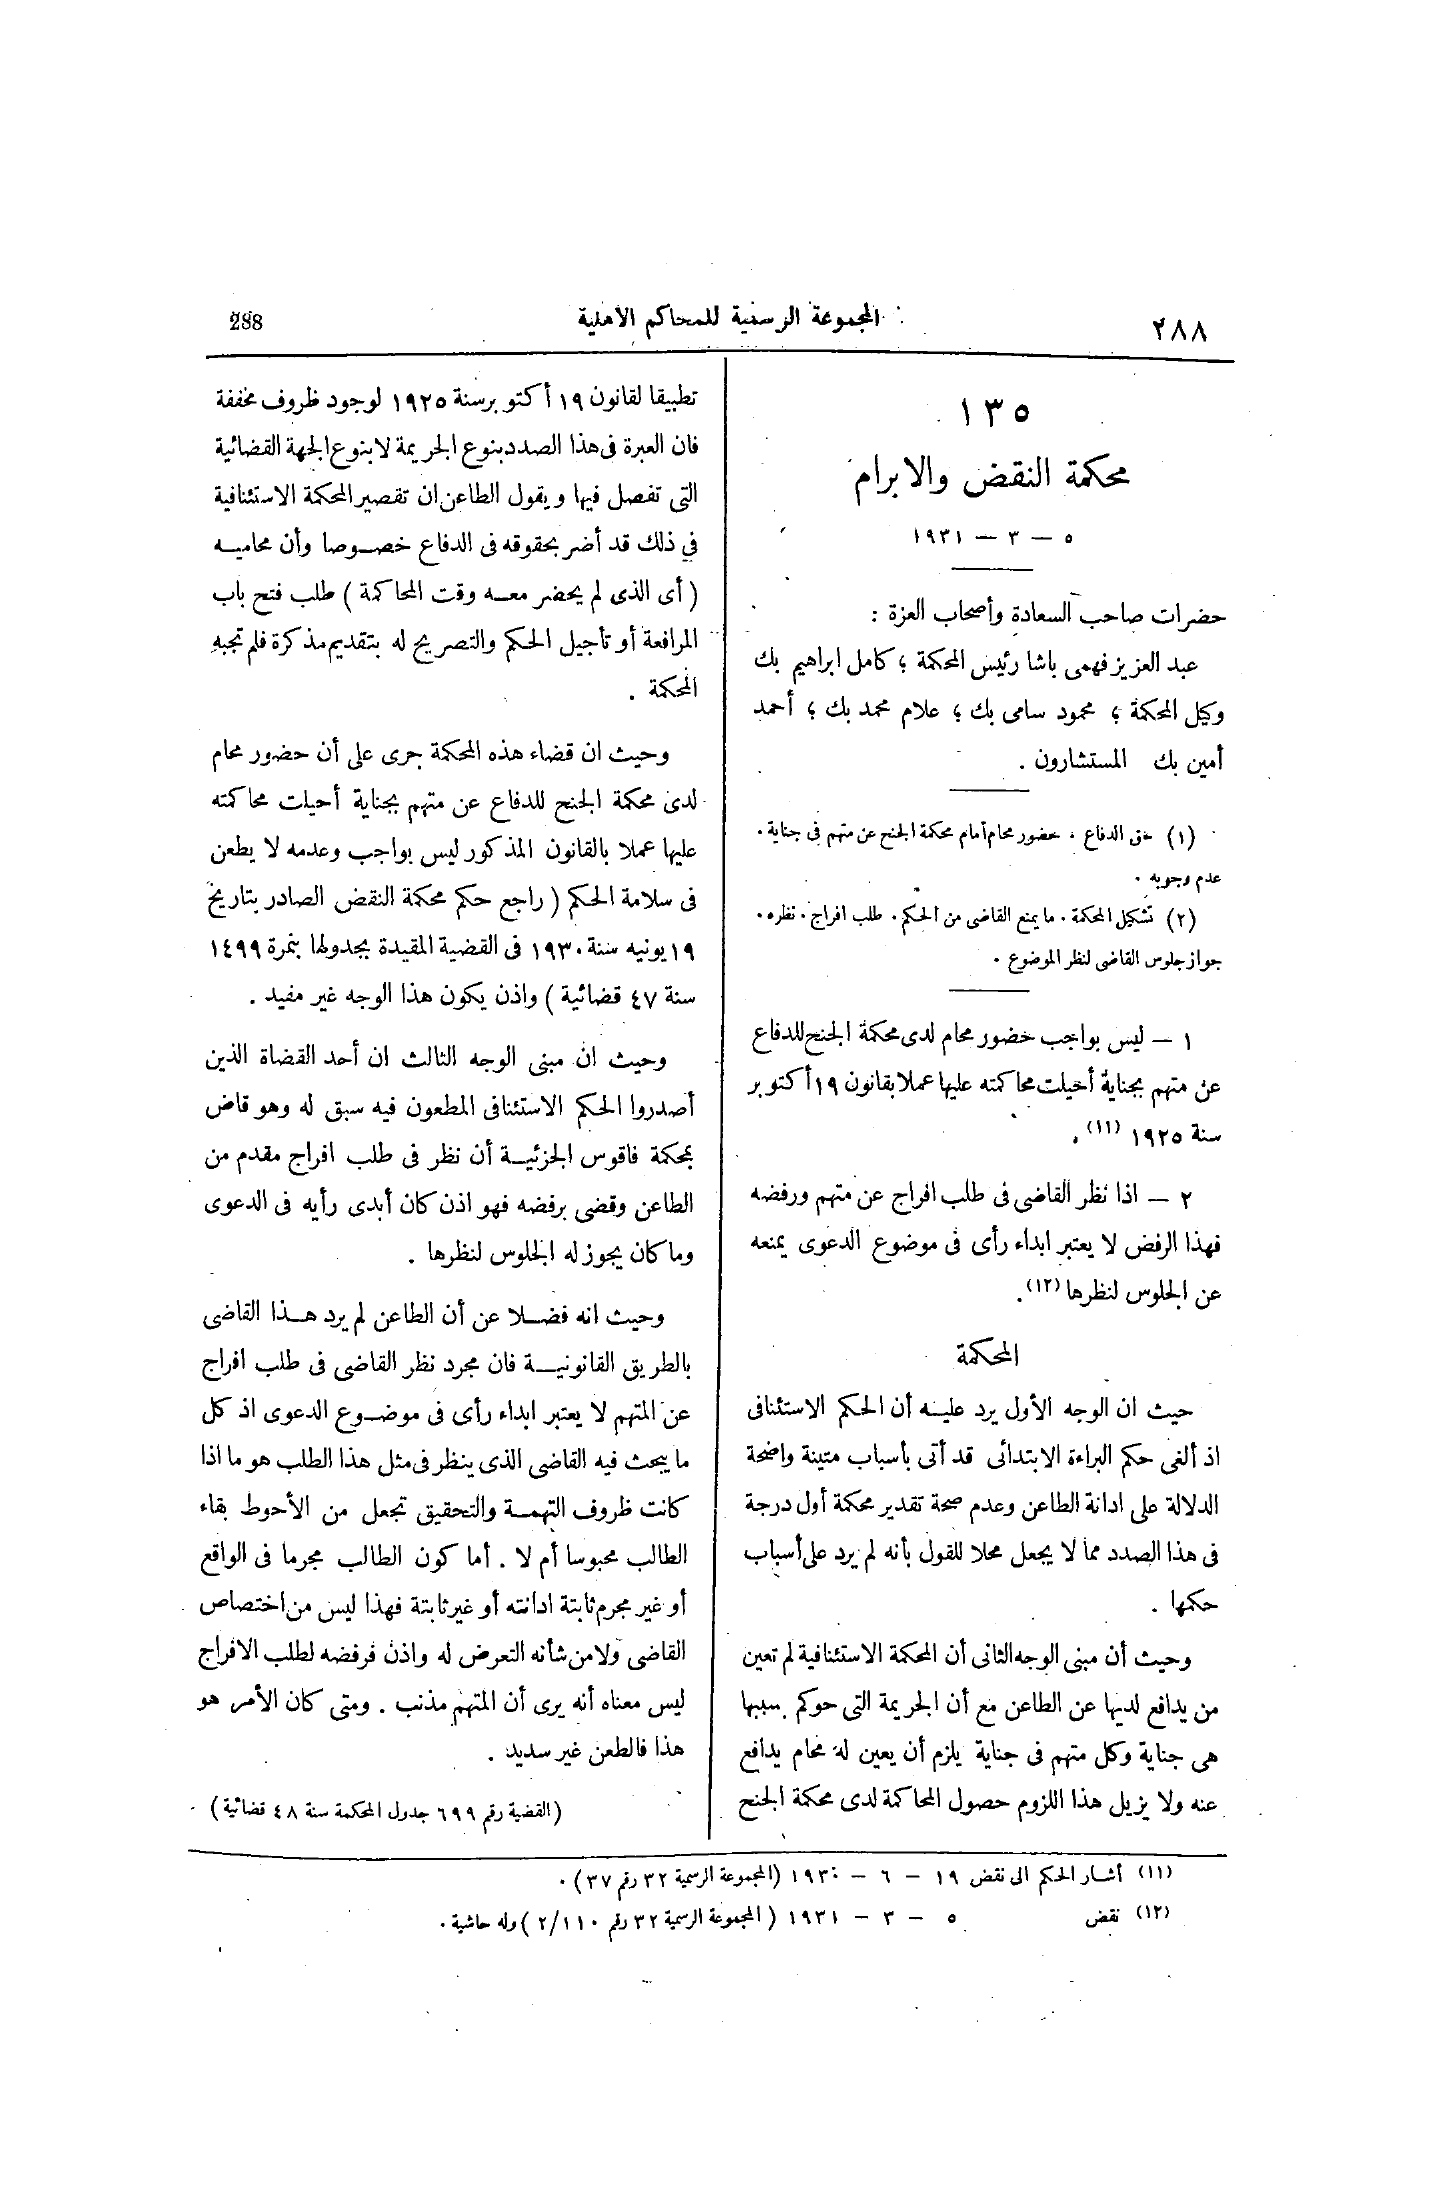 ٢٨٨ المجموعة الرسمية للمحاكم الأهلية 288
١٣٥
محكمة النقض والابرام
٥ — ٣ — ١٩٣١
حضرات صاحب السعادة وأصحاب العزة :
عبد العزيز فهمى باشا رئيس المحكمة ؛ كامل ابراهيم بك
وكيل المحكمة ؛ محمود سامى بك ؛ علام محمد بك ؛ أحمد
أمين بك المستشارون .
(١) حق الدفاع . حضور محام أمام محكمة الجنح عن متهم فى جناية .
عدم وجوبه .
(٢) تشكيل المحكمة . ما يمنع القاضى من الحكم . طلب افراج . نظره .
جواز جلوس القاضى لنظر الموضوع .
١ — ليس بواجب حضور محام لدى محكمة الجنح للدفاع
عن متهم بجناية أحيلت محاكمته عليها عملا بقانون ١٩ أكتوبر
سنة ١٩٢٥ (١١) .
٢ — اذا نظر القاضى فى طلب افراج عن متهم ورفضه
فهذا الرفض لا يعتبر ابداء رأى فى موضوع الدعوى يمنعه
عن الجلوس لنظرها (١٢) .
المحكمة
حيث ان الوجه الأول يرد عليه أن الحكم الاستئنافى
اذ ألغى حكم البراءة الابتدائى قد أتى بأسباب متينة واضحة
الدلالة على ادانة الطاعن وعدم صحة تقدير محكمة أول درجة
فى هذا الصدد مما لا يجعل محلا للقول بأنه لم يرد على أسباب
حكمها .
وحيث أن مبنى الوجه الثانى أن المحكمة الاستئنافية لم تعين
من يدافع لديها عن الطاعن مع أن الجريمة التى حوكم بسببها
هى جناية وكل متهم فى جناية يلزم أن يعين له محام يدافع
عنه ولا يزيل هذا اللزوم حصول المحاكمة لدى محكمة الجنح
تطبيقا لقانون ١٩ أكتوبر سنة ١٩٢٥ لوجود ظروف مخففة
فان العبرة فى هذا الصدد بنوع الجريمة لا بنوع الجهة القضائية
التى تفصل فيها ويقول الطاعن ان تقصير المحكمة الاستئنافية
فى ذلك قد أضر بحقوقه فى الدفاع خصوصا وأن محاميه
( أى الذى لم يحضر معه وقت المحاكمة ) طلب فتح باب
المرافعة أو تأجيل الحكم والتصريح له بتقديم مذكرة فلم تجبه
المحكمة .
وحيث ان قضاء هذه المحكمة جرى على أن حضور محام
لدى محكمة الجنح للدفاع عن متهم بجناية أحيلت محاكمته
عليها عملا بالقانون المذكور ليس بواجب وعدمه لا يطعن
فى سلامة الحكم ( راجع حكم محكمة النقض الصادر بتاريخ
١٩ يونيه سنة ١٩٣٠ فى القضية المقيدة بجدولها بنمرة ١٤٩٩
سنة ٤٧ قضائية ) واذن يكون هذا الوجه غير مفيد .
وحيث ان مبنى الوجه الثالث ان أحد القضاة الذين
أصدروا الحكم الاستئنافى المطعون فيه سبق له وهو قاض
بمحكمة فاقوس الجزئية أن نظر فى طلب افراج مقدم من
الطاعن وقضى برفضه فهو اذن كان أبدى رأيه فى الدعوى
وما كان يجوز له الجلوس لنظرها .
وحيث انه فضلا عن أن الطاعن لم يرد هذا القاضى
بالطريق القانونية فان مجرد نظر القاضى فى طلب افراج
عن المتهم لا يعتبر ابداء رأى فى موضوع الدعوى اذ كل
ما يبحث فيه القاضى الذى ينظر فى مثل هذا الطلب هو ما اذا
كانت ظروف التهمة والتحقيق تجعل من الأحوط بقاء
الطالب محبوسا أم لا . أما كون الطالب مجرما فى الواقع
أو غير مجرم ثابتة ادانته أو غير ثابتة فهذا ليس من اختصاص
القاضى ولا من شأنه التعرض له واذن فرفضه لطلب الافراج
ليس معناه أنه يرى أن المتهم مذنب . ومتى كان الأمر هو
هذا فالطعن غير سديد .
(القضية رقم ٦٩٩ جدول المحكمة سنة ٤٨ قضائية)
(١١) أشار الحكم الى نقض ١٩ — ٦ — ١٩٣٠ (المجموعة الرسمية ٣٢ رقم ٣٧) .
(١٢) نقض ٥ — ٣ — ١٩٣١ ( المجموعة الرسمية ٣٢ رقم ٢/١١٠ ) وله حاشية .